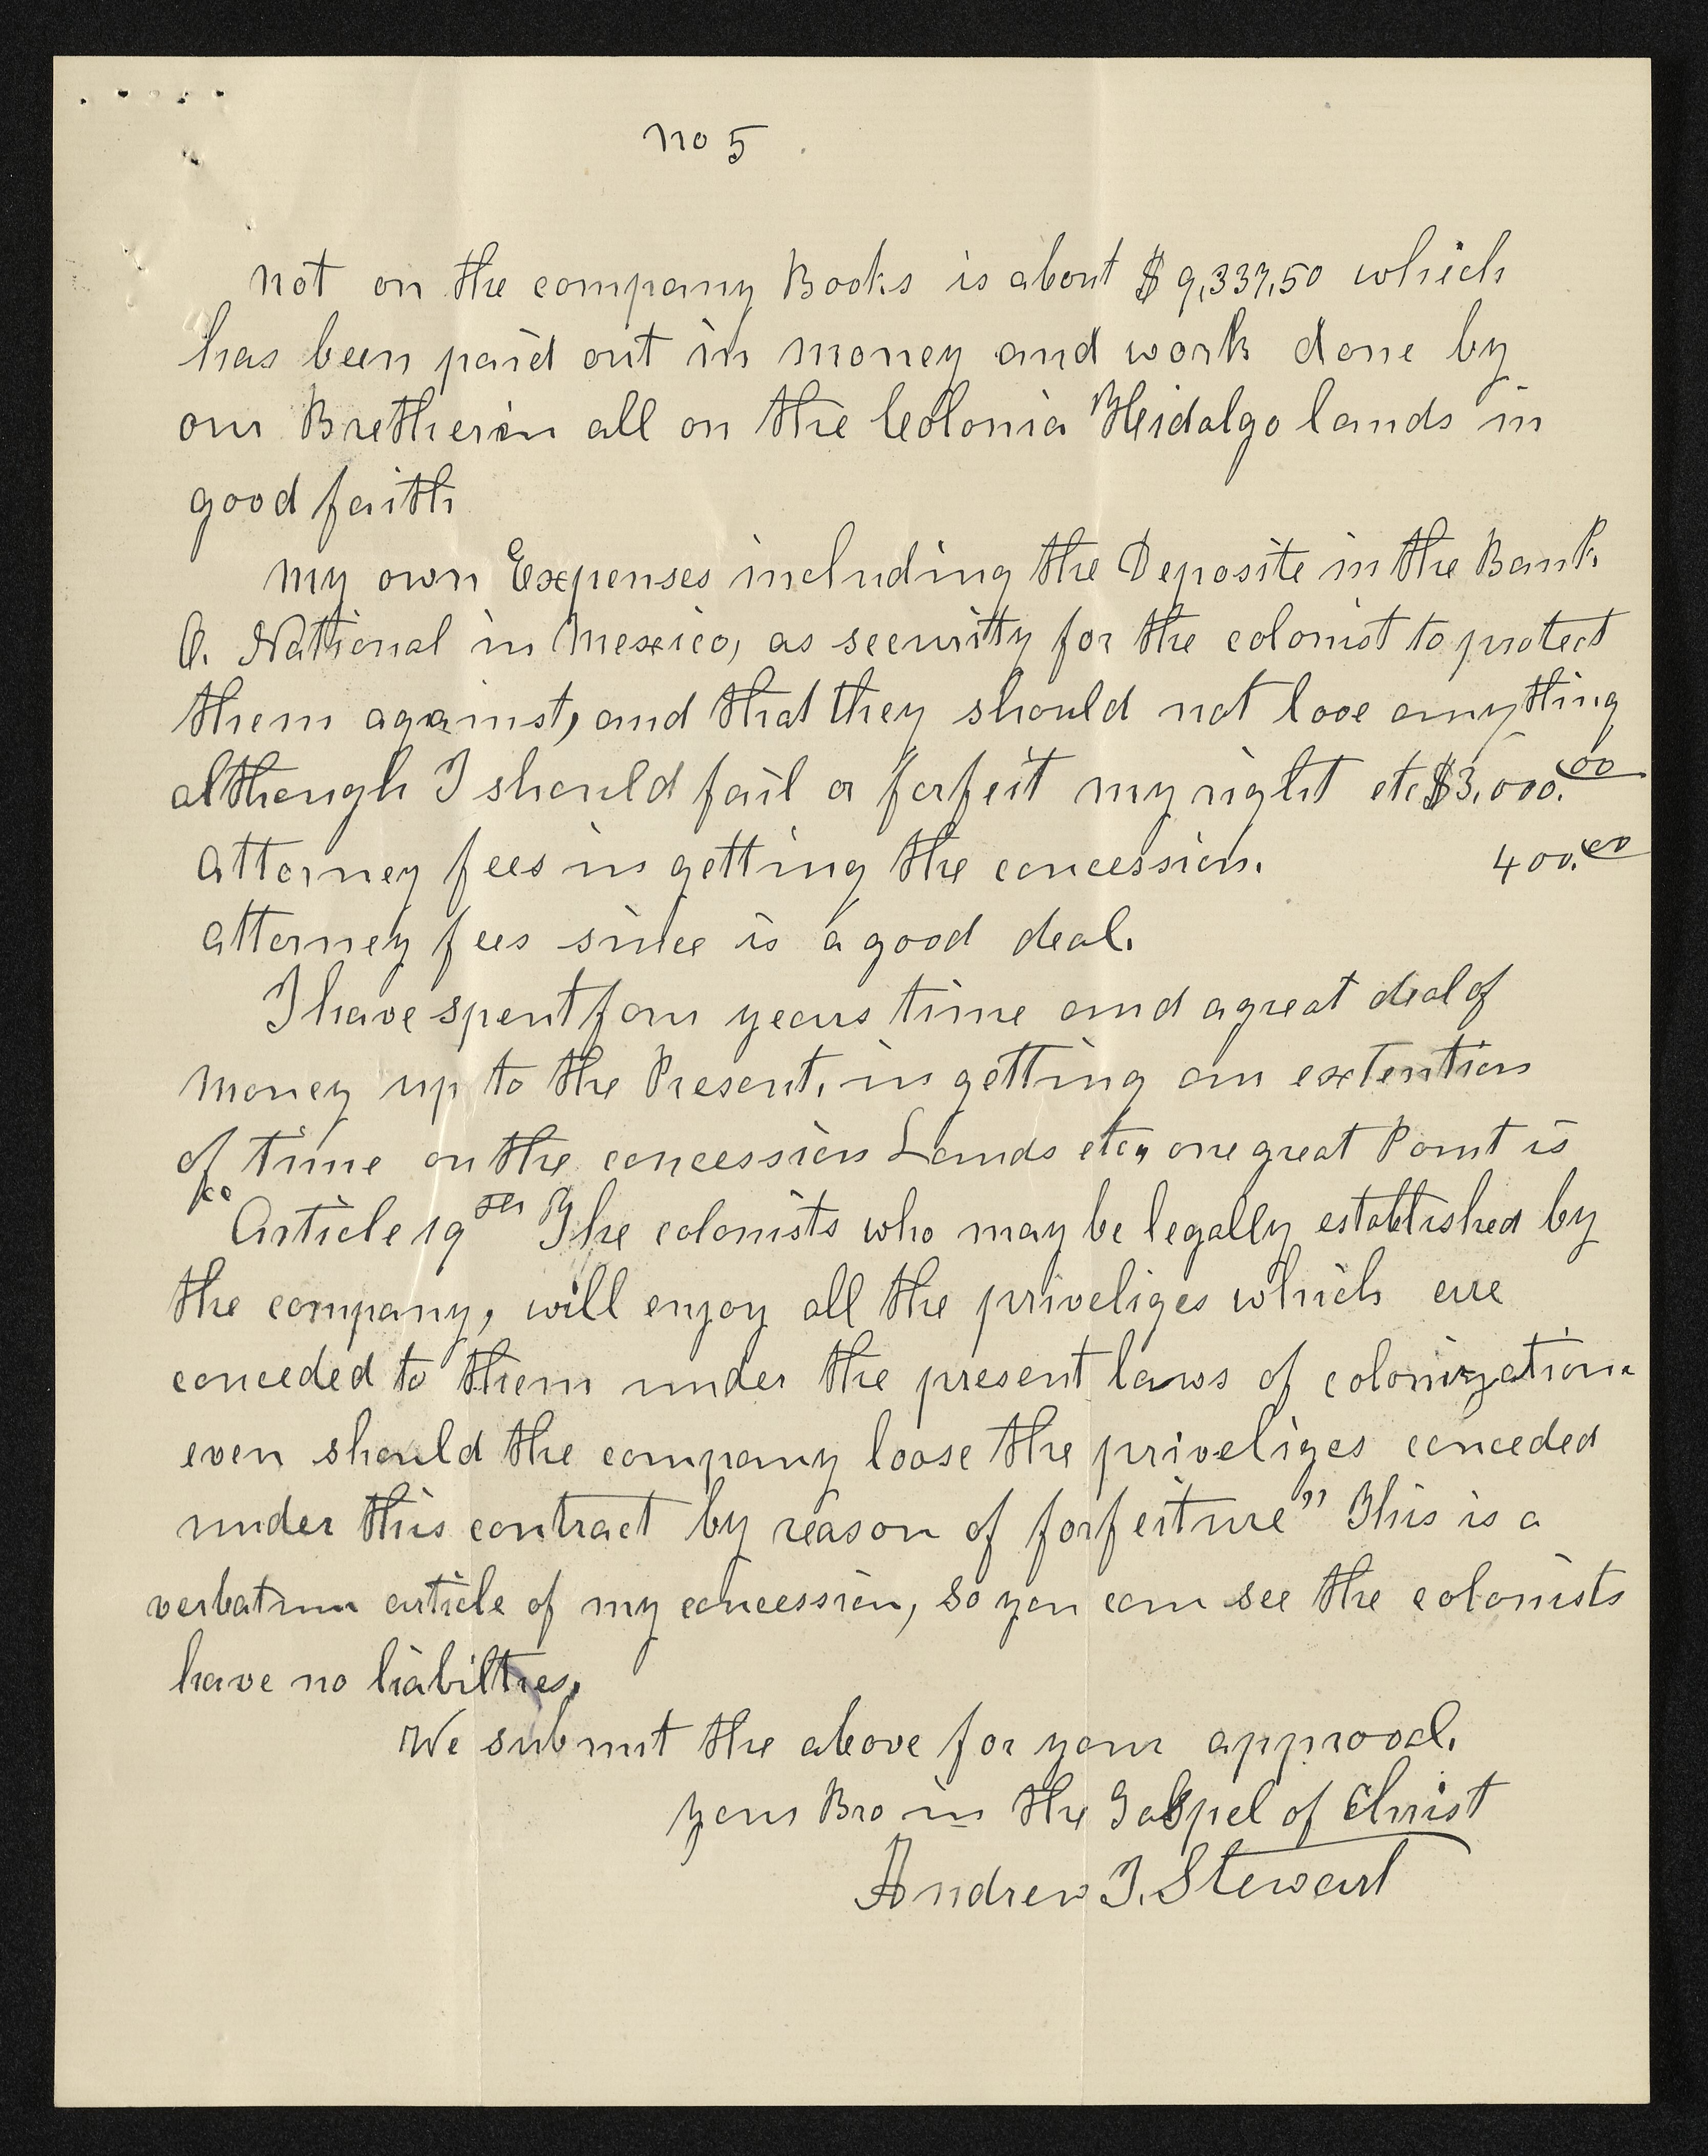 no 5
not on the company Books is about $9,337,50 which
has been paid out in money and work done by
our Bretherin all on the Colonia Hidalgo lands in
good faith
my own Expenses including the Deposite in the Bank
O. National in Mexico, as security for the colonist to protect
them against, and that they should not loose anything
although I should fail or forfeit my right etc $3,000.00
Attorney fees in getting the concession. 400.00
Attorney fees since is a good deal.
I have spent four years time and a great deal of
money up to the Present, in getting an extention
of time on the concession Lands etc, one great Point is
"Article 19th The colonists who may be legally established by
the company, will enjoy all the priveliges which are
conceded to them under the present laws of colonization
even should the company loose the priveliges conceded
under this contract by reason of forfeiture" This is a
verbatum article of my concession, so you can see the colonists
have no liabilties,
We submit the above for your approval.
your Bro in the Gospel of Christ
Andrew J. Stewart